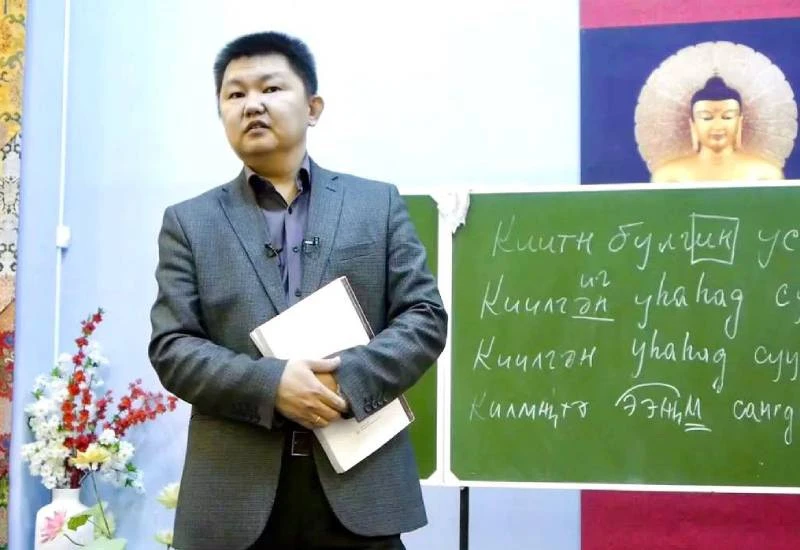 Киитн булгин ус
иг
Киилгән уһаһад су
Киилгән уһаһад суу
Килмҗтә ээҗм сангд